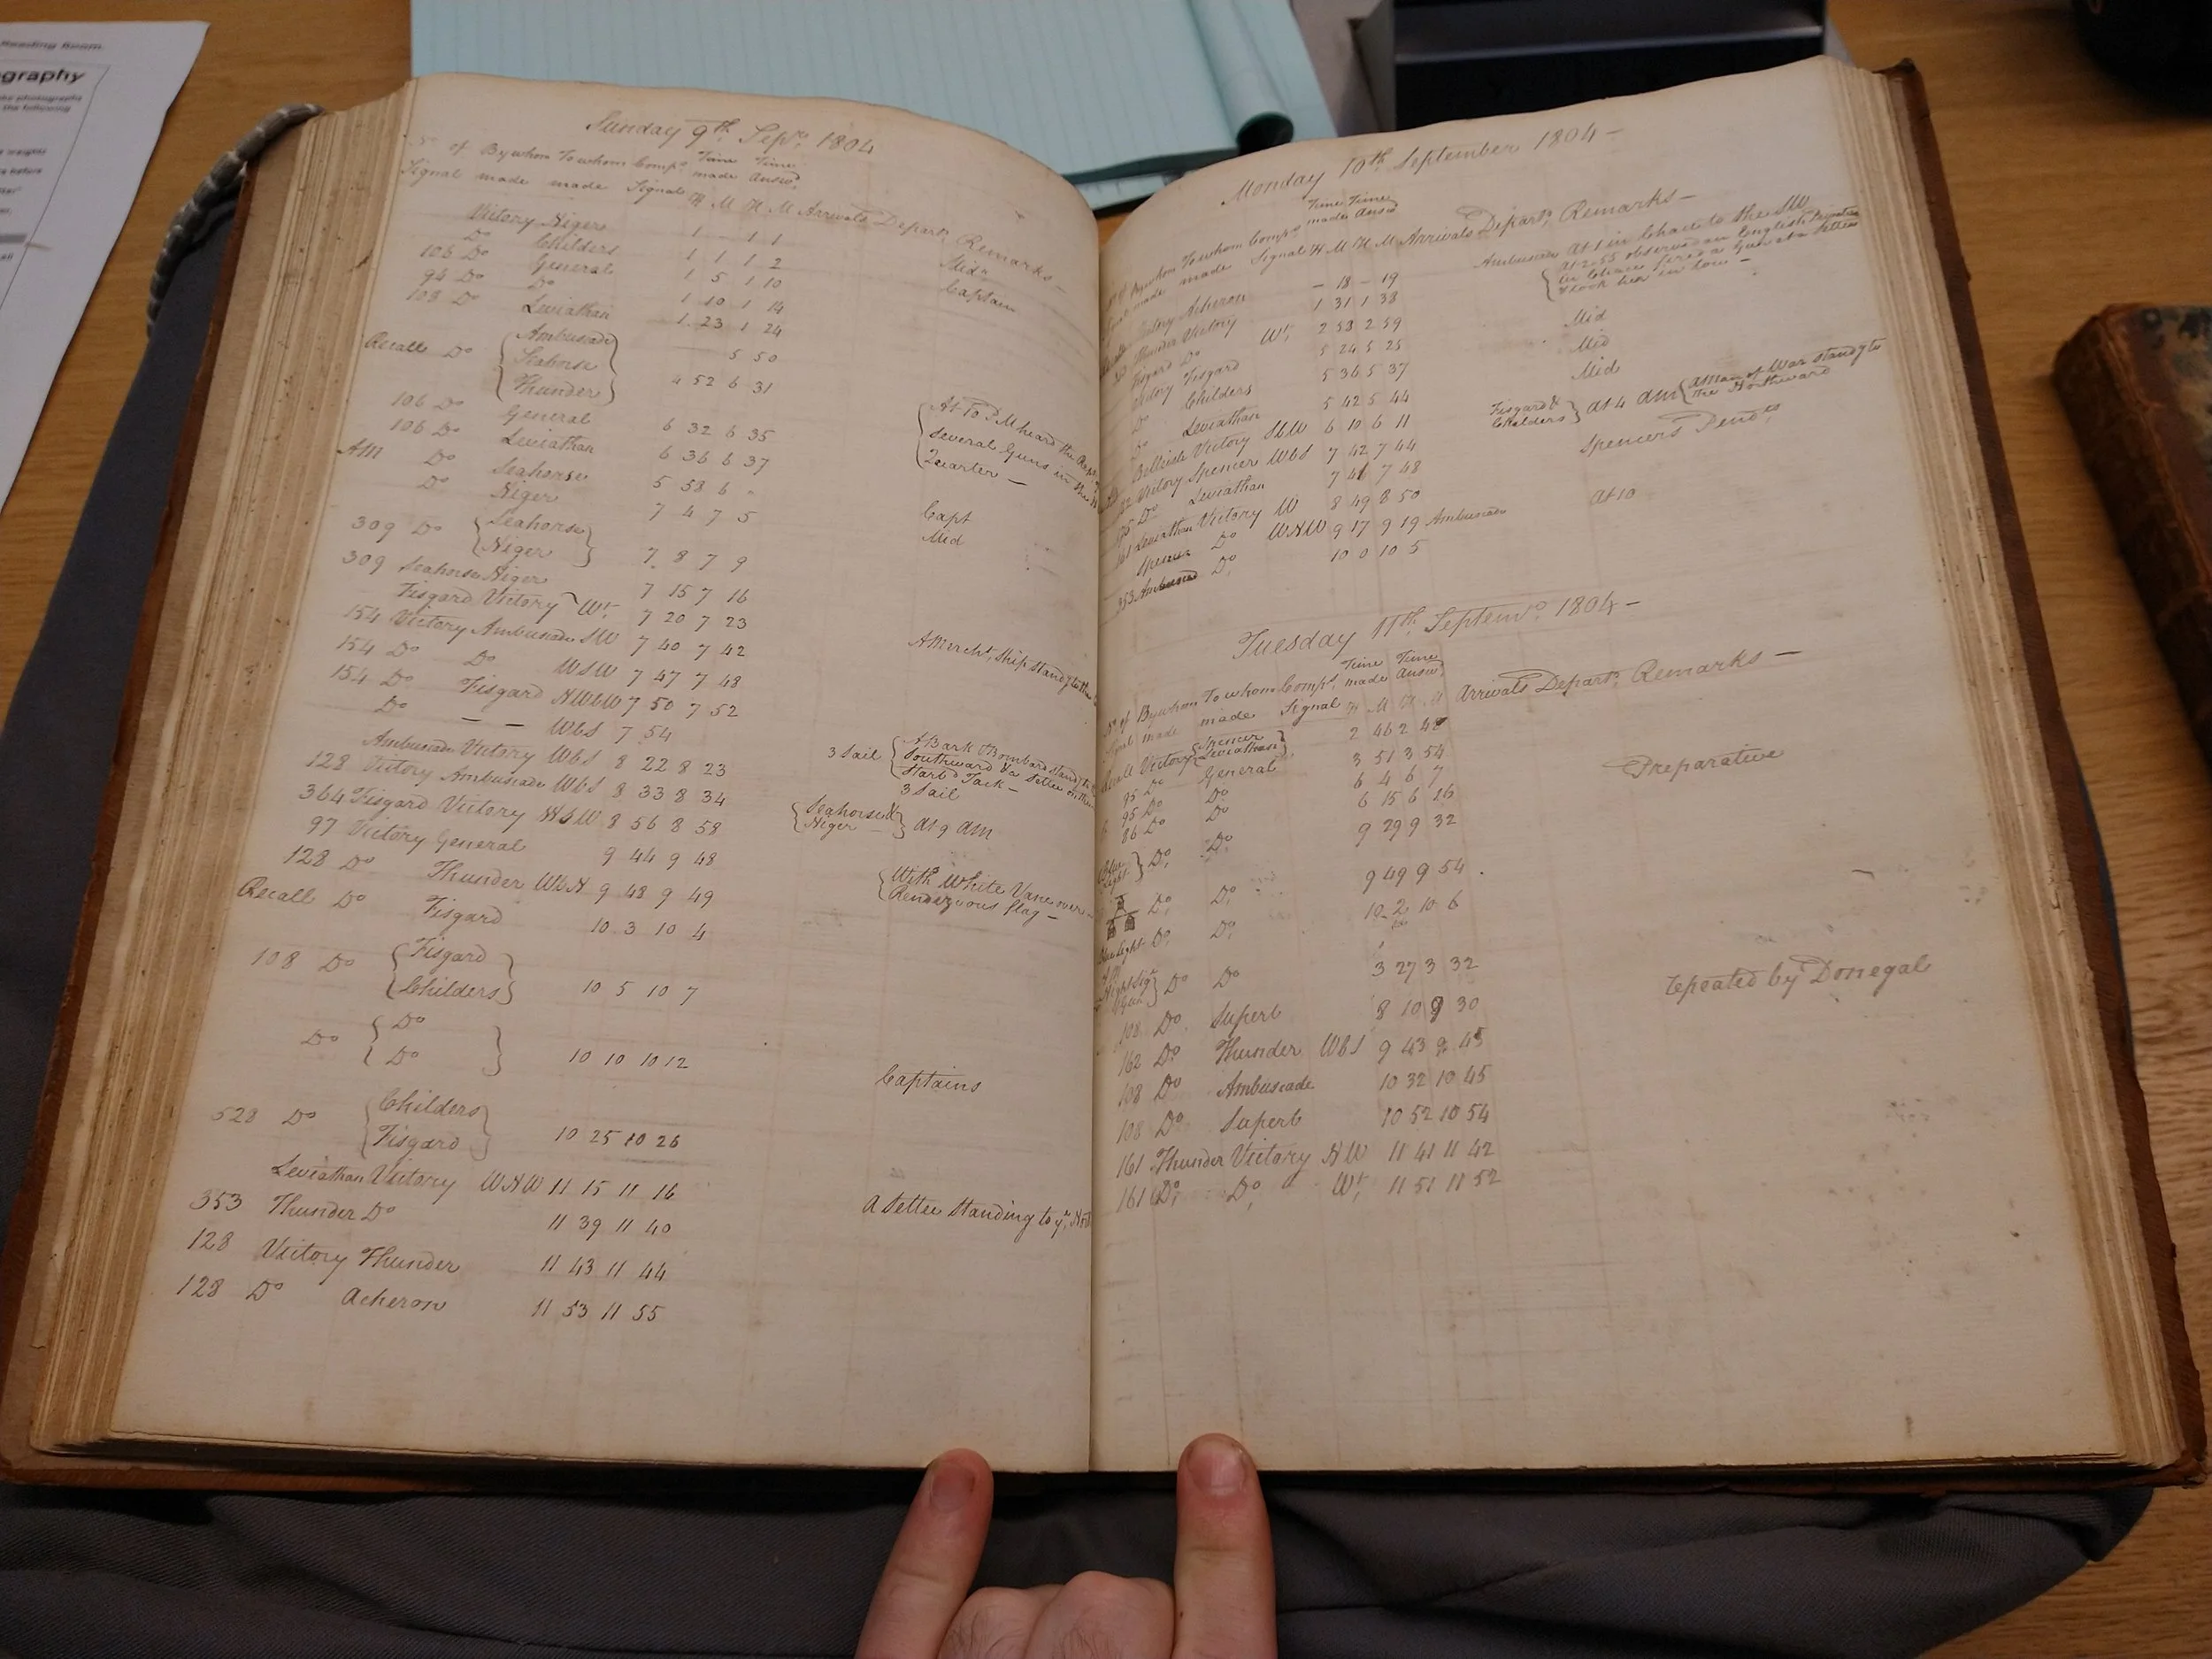 Reading Room
ography
Sunday 9th Sepr. 1804
No of By whom To whom Comps. Time Time
Signal made made Signal made Answd.
H M H M Arrivals Depart. Remarks —
Victory Niger 1 1 1
Do Childers 1 1 1 2 Mid
106 Do General 1 5 1 10 Captain
94 Do Do 1 10 1 14
108 Do Leviathan 1 23 1 24
Recall Do Ambuscade 5 50
Seahorse
Thunder 4 52 6 31
106 Do General 6 32 6 35 At PM heard the
106 Do Leviathan 6 36 6 37 Several Guns in the
AM Do Seahorse 5 58 6 Quarter —
Do Niger 7 4 7 5 Capt
309 Do Seahorse Mid
Niger 7 8 7 9
309 Seahorse Niger 7 15 7 16
Fisgard Victory Wt. 7 20 7 23
154 Victory Ambuscade SW 7 40 7 42 A Mercht. Ship standg to the
154 Do Do WSW 7 47 7 48
154 Do Fisgard NWbW 7 50 7 52
Do — — WbS 7 54
Ambuscade Victory WbS 8 22 8 23 3 Sail A Bark & Bombard standg to
Southward & a Settee on the
Starbd Tack —
128 Victory Ambuscade WbS 8 33 8 34 3 Sail
364 Fisgard Victory 8 56 8 58 Seahorse &
Niger at 9 am
97 Victory General 9 44 9 48
128 Do Thunder WbN 9 48 9 49 With White Vane over
Rendezvous flag —
Recall Do Fisgard 10 3 10 4
108 Do Fisgard
Childers 10 5 10 7
Do Do
Do 10 10 10 12 Captains
528 Do Childers
Fisgard 10 25 10 26
Leviathan Victory WNW 11 15 11 16
353 Thunder Do 11 39 11 40 A Settee Standing to ye.
128 Victory Thunder 11 43 11 44
128 Do Acheron 11 53 11 55
Monday 10th September 1804 —
Time Time
made Answd
By whom To whom Comps.
made Signal H M H M Arrivals Depart. Remarks —
Victory Acheron — 18 — 19 Ambuscade At 1 in Chace to the SW
Thunder Victory 1 31 1 38 At 2.55 observed an English Privateer
in Chace fired a Gun at a Settee
& took her in tow —
Fisgard Do Wt. 2 58 2 59
Victory Fisgard 5 24 5 25 Mid
Do Childers 5 36 5 37 Mid
Do Leviathan 5 42 5 44 Mid
Belleisle Victory SbW 6 10 6 11 Fisgard &
Childers at 4 am A Man of War standg to
the Northward
Victory Spencer WbS 7 42 7 44 Spencers Pendts.
Do Leviathan 7 7 48
Leviathan Victory W 8 49 8 50
Spencer Do WNW 9 17 9 19 Ambuscade at 10
353 Ambuscade Do. 10 0 10 5
Tuesday 11th. Septemr. 1804 —
Time Time
No of By whom To whom Comps. made Answd.
Signal made made Signal H M H M Arrivals Depart. Remarks —
Recall Victory Spencer
Leviathan 2 46 2 48
95 Do General 3 51 3 54 Preparative
95 Do Do 6 4 6 7
86 Do Do 6 15 6 26
Blue
Light Do. Do. 9 29 9 32
Do. Do. 9 49 9 54
Blue Light Do. Do. 10 2 10 6
Night Sigl
Gun Do Do 3 27 3 32 repeated by Donegal
108 Do Superb 8 10 30
162 Do Thunder WbS 9 43 9 45
108 Do Ambuscade 10 32 10 45
108 Do Superb 10 52 10 54
161 Thunder Victory NW 11 41 11 42
161 Do. Do. Wt. 11 51 11 52